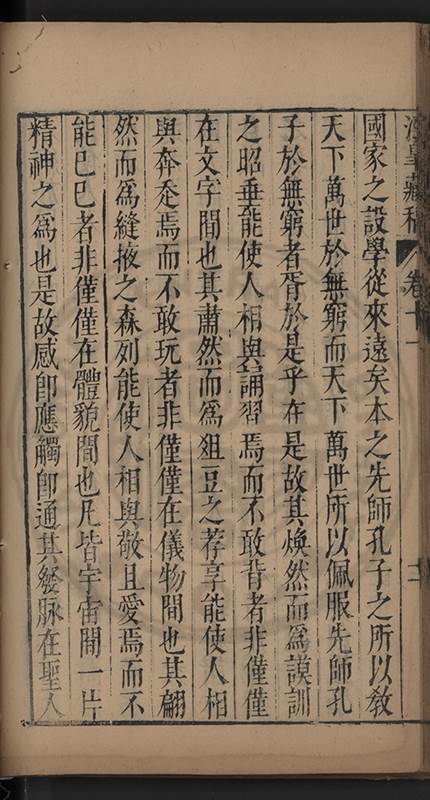 涇皋藏稿 卷十一 二
國家之設學從來遠矣本之先師孔子之所以教
天下萬世於無窮而天下萬世所以佩服先師孔
子於無窮者胥於是乎在是故其煥然而為謨訓
之昭垂能使人相與誦習焉而不敢背者非僅僅
在文字間也其肅然而為俎豆之荐享能使人相
與奔走焉而不敢玩者非僅僅在儀物間也其翩
然而為縫掖之森列能使人相與敬且愛焉而不
能已已者非僅僅在體貌間也凡皆宇宙間一片
精神之為也是故感卽應觸卽通其發脉在聖人